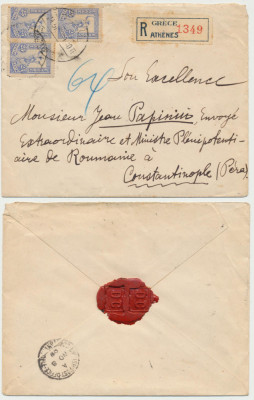 GRÈCE
R ATHÈNES 1349
64
Son Excellence
Monsieur Jean Papiniu, Envoyé
Extraordinaire et Ministre Plénipotenti-
aire de Roumanie à
Constantinople (Péra)